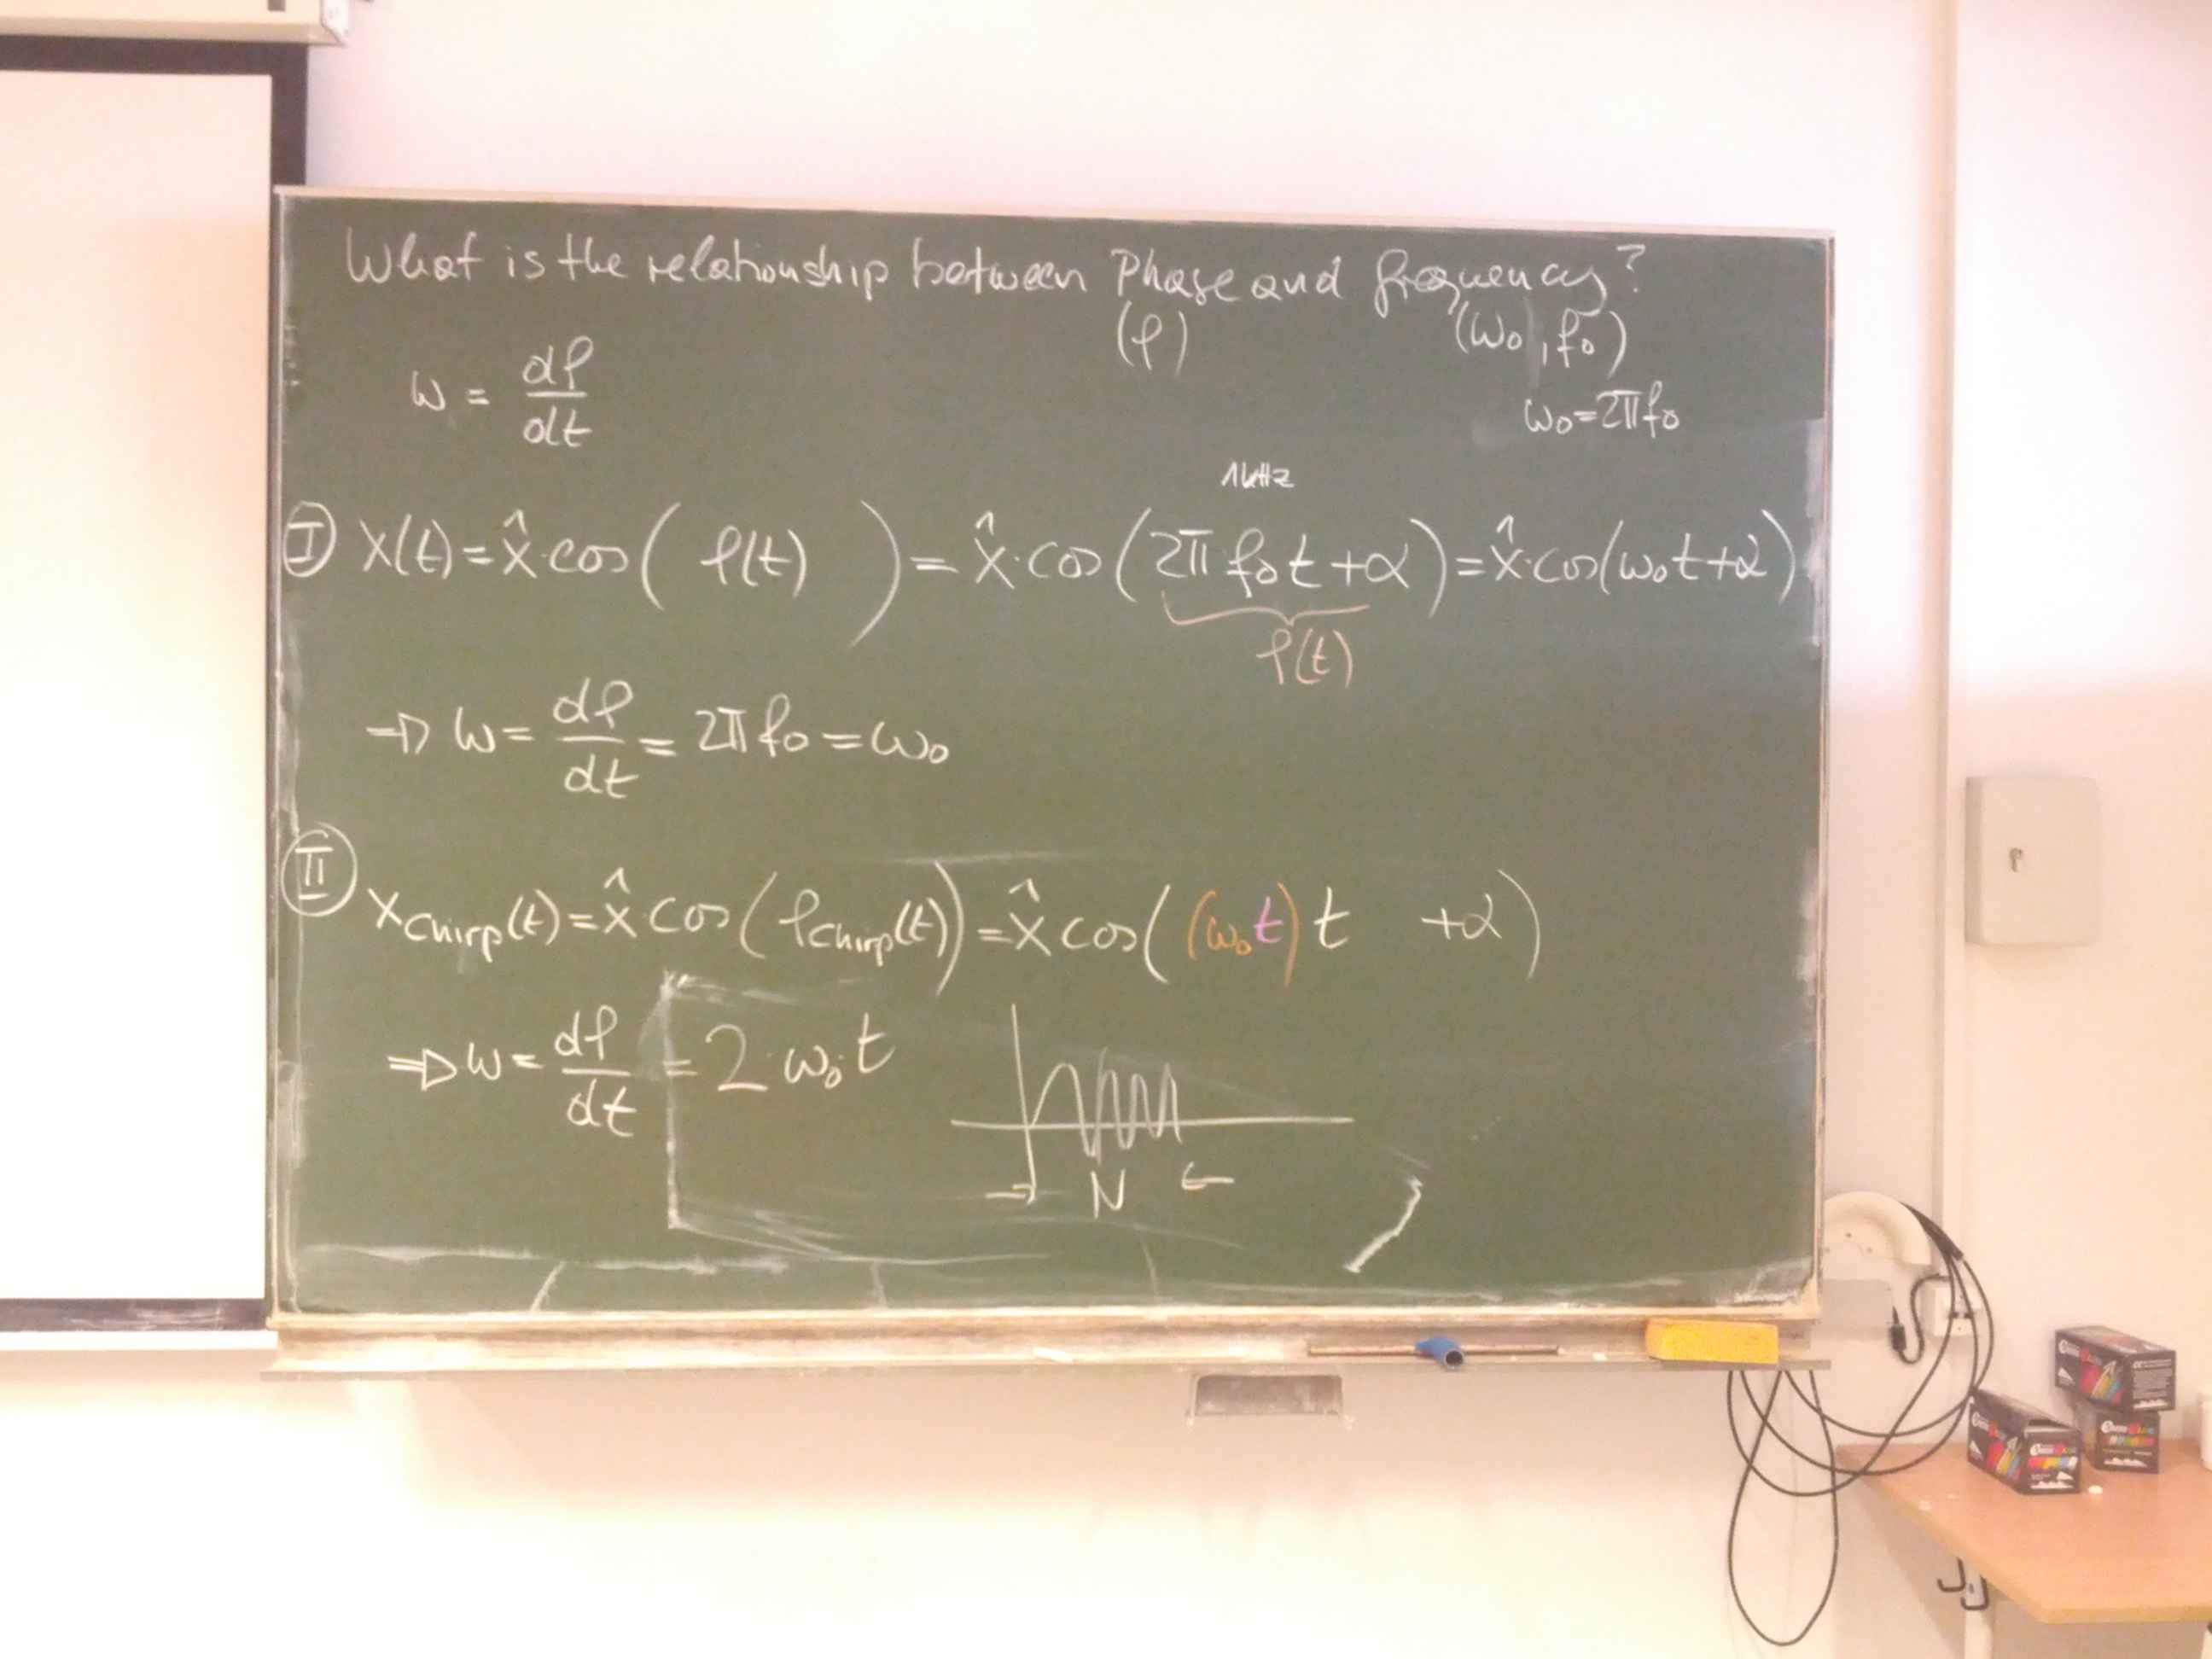 What is the relationship between Phase and frequency?
(φ) (ω₀, f₀)
ω = dφ/dt
ω₀=2πf₀
1kHz
Ⓘ x(t) = x̂·cos( φ(t) ) = x̂·cos(2πf₀t+α) = x̂·cos(ω₀t+α)
φ(t)
⇒ ω = dφ/dt = 2πf₀ = ω₀
Ⅱ x_Chirp(t) = x̂·cos(φ_Chirp(t)) = x̂ cos((ω₀t)t +α)
⇒ ω = dφ/dt = 2·ω₀·t
N